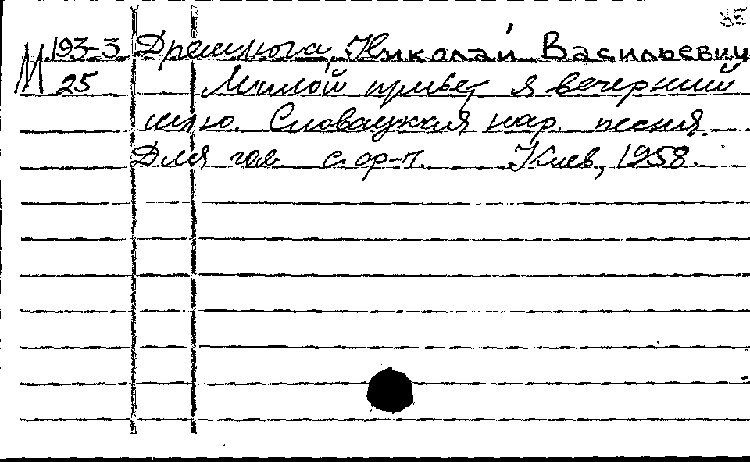 ЗЕ
М 193-3 Дремлюга, Николай Васильевич
25 Милой привет я вечерний
шлю. Словацкая нар. песня.
Для гол. с ор-м. Киев, 1958.